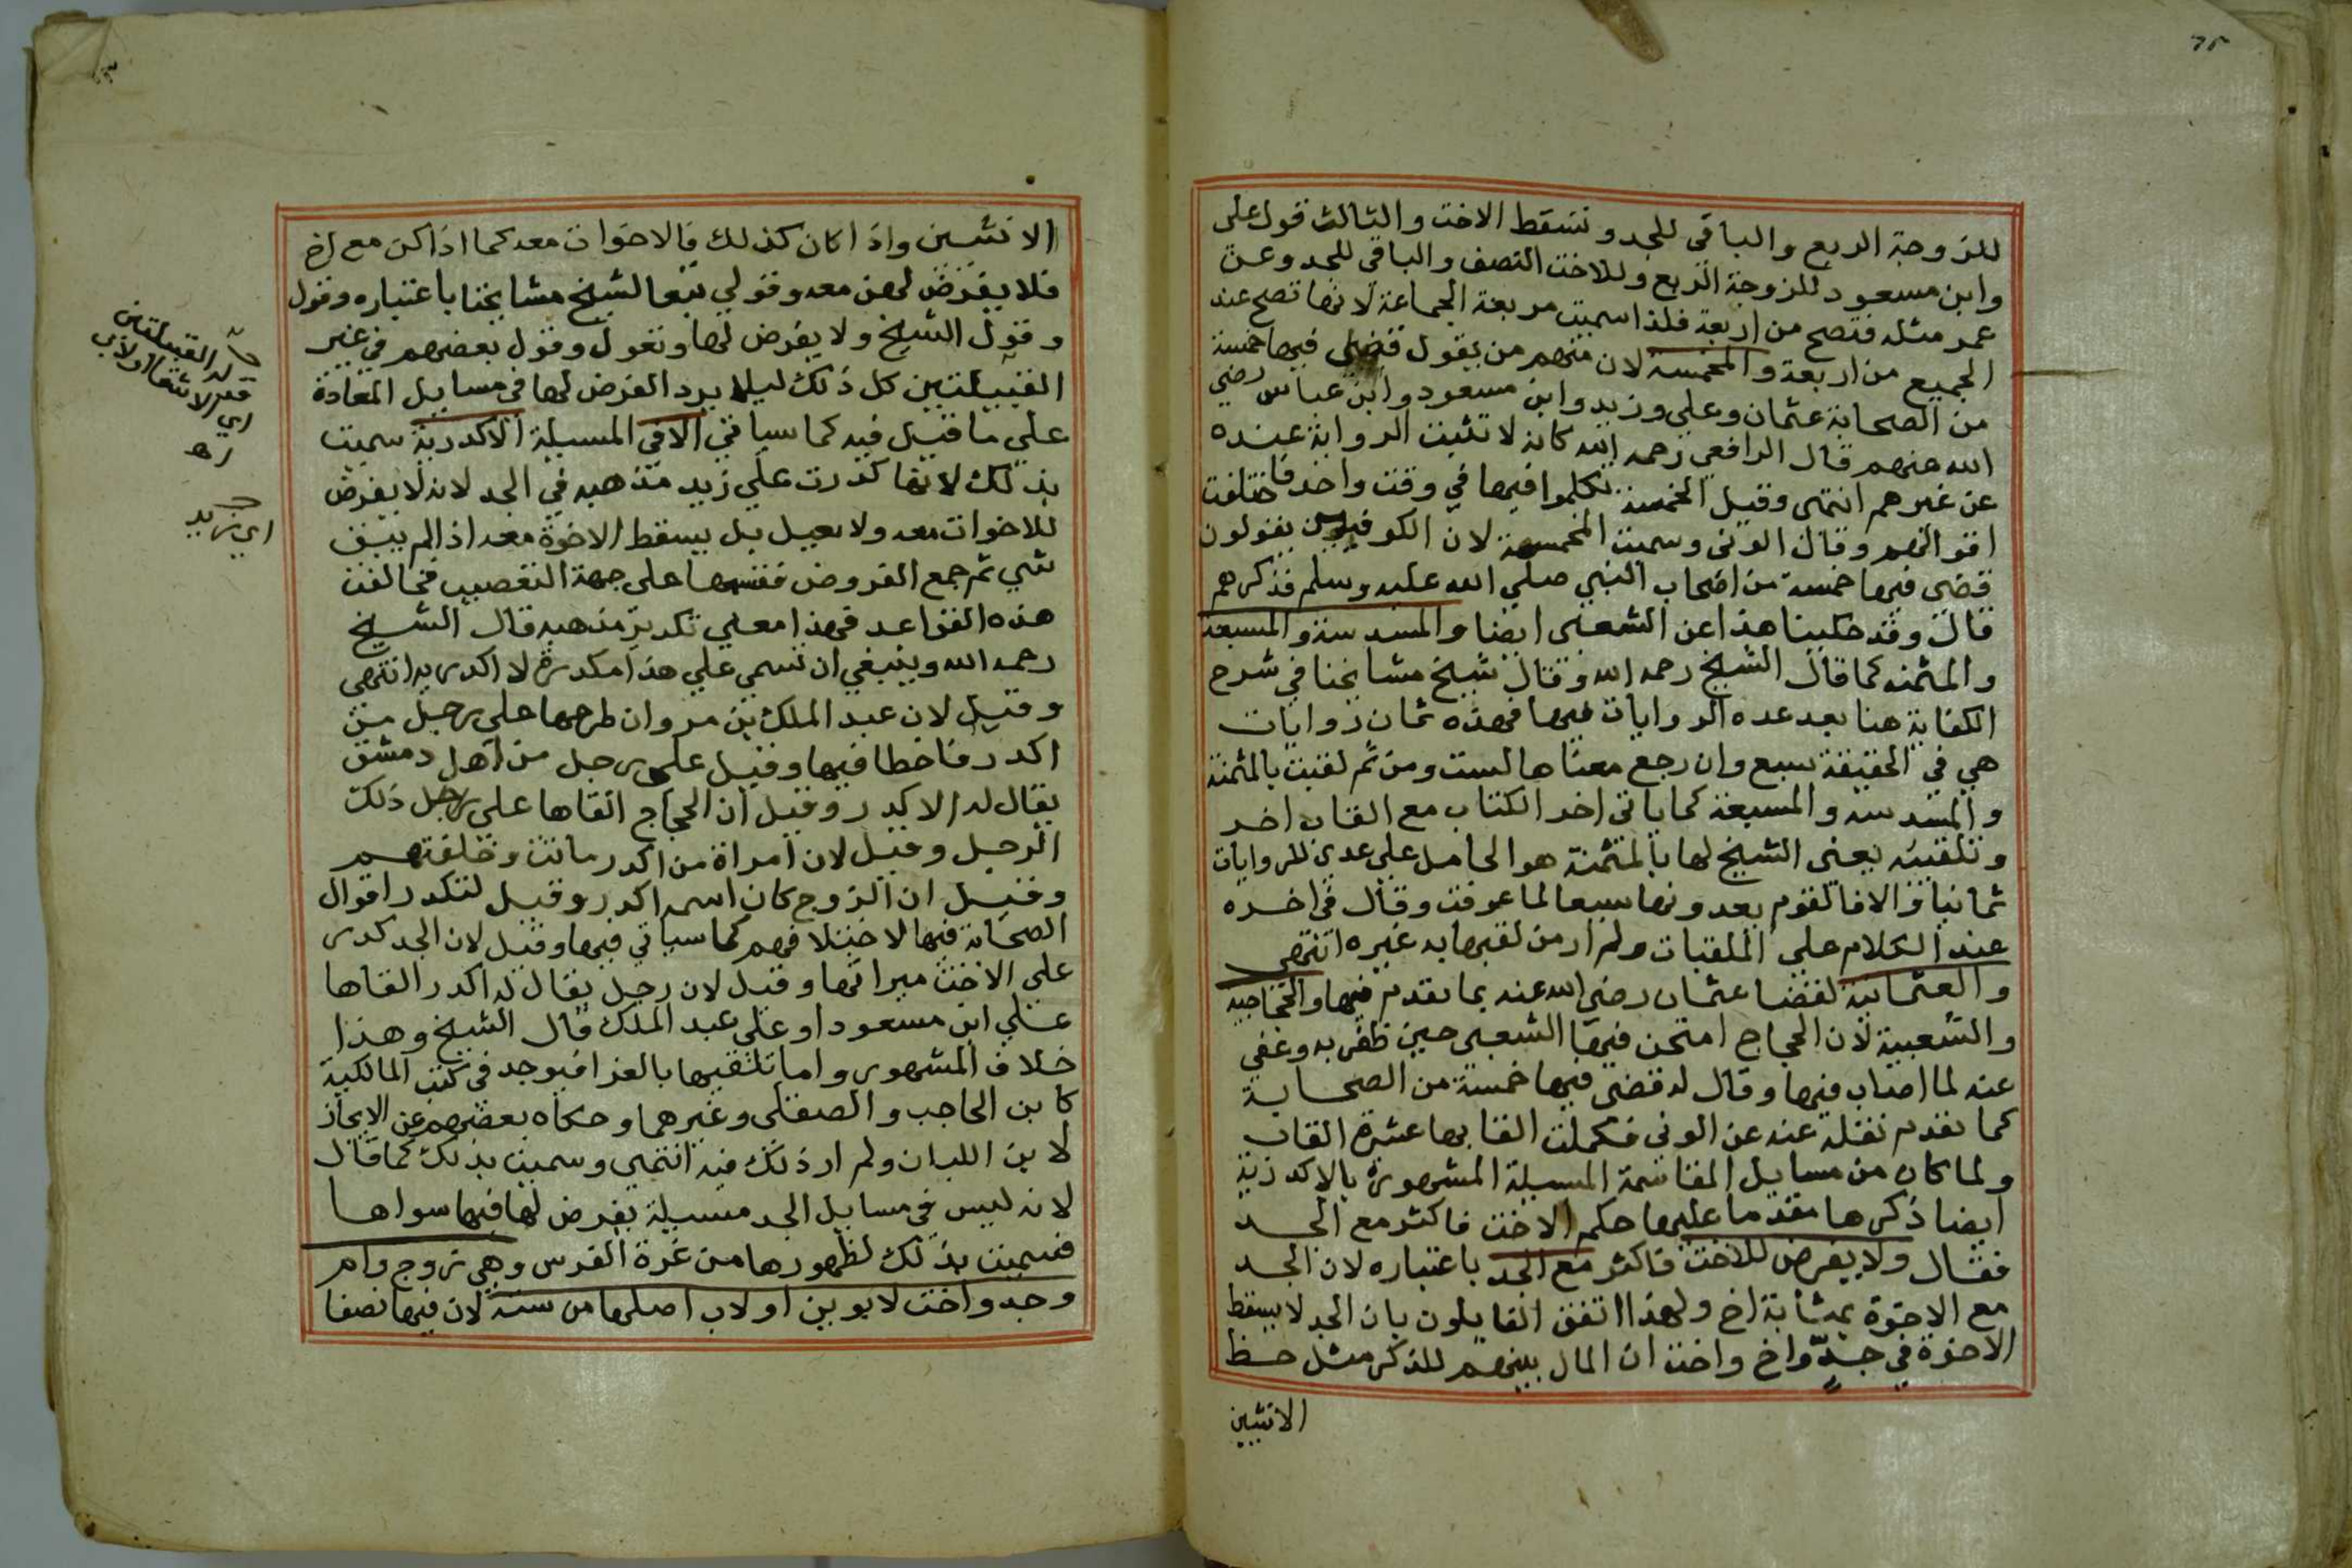 للزوجة الربع والباقى للجد وتسقط الاخت والثالث قول على
وابن مسعود للزوجة الربع وللاخت النصف والباقي للجد وعن
عمر مثله فتصح من اربعة فلذا سميت مربعة الجماعة لانها تصح عند
الجميع من اربعة والمخمسة لان منهم من يقول قضى فيها خمسة
من الصحابة عثمان وعلي وزيد وابن مسعود وابن عباس رضي
الله عنهم قال الرافعي رحمه الله كانه لا تثبت الرواية عنده
عن غيرهم انتهى وقيل الخمسة تكلموا فيها في وقت واحد فاختلفت
اقوالهم وقال الونى وسميت المخمسة لان الكوفيين يقولون
قضى فيها خمسة من اصحاب النبي صلي الله عليه وسلم فذكرهم
قال وقد حكينا هذا عن الشعبى ايضا والمسدسة والمسبعة
والمثمنه كما قال الشيخ رحمه الله وقال شيخ مشايخنا في شرح
الكفاية هنا بعد عده الروايات فيها فهذه ثمان روايات
هي في الحقيقة سبع وان رجع معناها لست ومن ثم لقبت بالمثمنة
والمسدسه والمسبعة كما ياتى اخر الكتاب مع القاب اخر
وتلقيبه يعني الشيخ لها بالمثمنة هو الحامل علي عدي للروايات
ثمانيا والا فالقوم يعدونها سبعا لما عرفت وقال في اخره
عند الكلام علي الملقبات ولم ار من لقبها به غيره انتهي
والعثمانية لقضا عثمان رضي الله عنه بما تقدم فيها والحجاجيه
والشعبية لان الحجاج امتحن فيها الشعبى حين ظفر به وعفي
عنه لما اصاب فيها وقال له قضى فيها خمسة من الصحابة
كما تقدم نقله عنه عن الونى فكملت القابها عشرة القاب
ولما كان من مسايل المقاسمة المسيلة المشهورة بالاكدرية
ايضا ذكرها مقدما عليها حكم الاخت فاكثر مع الجد
فقال ولا يفرض للاخت فاكثر مع الجد باعتباره لان الجد
مع الاخوة بمثابة اخ ولهذا اتفق القايلون بان الجد لا يسقط
الاخوة في جد واخ واخت ان المال بينهم للذكر مثل حظ
الانثيين
الانثيين واذا كان كذلك فالاخوات معه كما اذا كن مع اخ
فلا يفرض لهن معه وقولي تبعا لشيخ مشايخنا باعتباره وقول
وقول الشيخ ولا يفرض لها وتعول وقول بعضهم في غير
القبيلتين كل ذلك ليلا يرد الفرض لها في مسايل المعادة
علي ما قيل فيه كما سياتي الا في المسيلة الاكدرية سميت
بذلك لانها كدرت علي زيد مذهبه في الجد لانه لا يفرض
للاخوات معه ولا يعيل بل يسقط الاخوة معه اذا لم يبق
شي ثم جمع الفروض فقسمها على جهة التعصيب فخالفت
هذه القواعد فهذا معني تكدير مذهبه قال الشيخ
رحمه الله وينبغي ان تسمي علي هذا مكدرة لا اكدريه انتهى
وقيل لان عبد الملك بن مروان طرحها على رجل من
اكدر فاخطا فيها وقيل على رجل من اهل دمشق
يقال له الاكدر وقيل ان الحجاج القاها على رجل ذلك
الرجل وقيل لان امراة من اكدر ماتت وخلفتهم
وقيل ان الزوج كان اسمه اكدر وقيل لتكدر اقوال
الصحابة فيها لاختلافهم كما سياتي فيها وقيل لان الجد كدر
علي الاخت ميراثها وقيل لان رجل يقال له اكدر القاها
علي ابن مسعود او علي عبد الملك قال الشيخ وهذا
خلاف المشهور واما تلقيبها بالغرا فيوجد في كتب المالكية
كابن الحاجب والصقلى وغيرهما وحكاه بعضهم عن الايجاز
لابن اللبان ولم ار ذلك فيه انتهى وسميت بذلك كما قال
لانه ليس في مسايل الجد مسيلة يفرض لها فيها سواها
فسميت بذلك لظهورها من غرة الفرس وهي زوج وام
وجد واخت لابوين او لاب اصلها من ستة لان فيها نصفا
القبيلتين
اي زيد